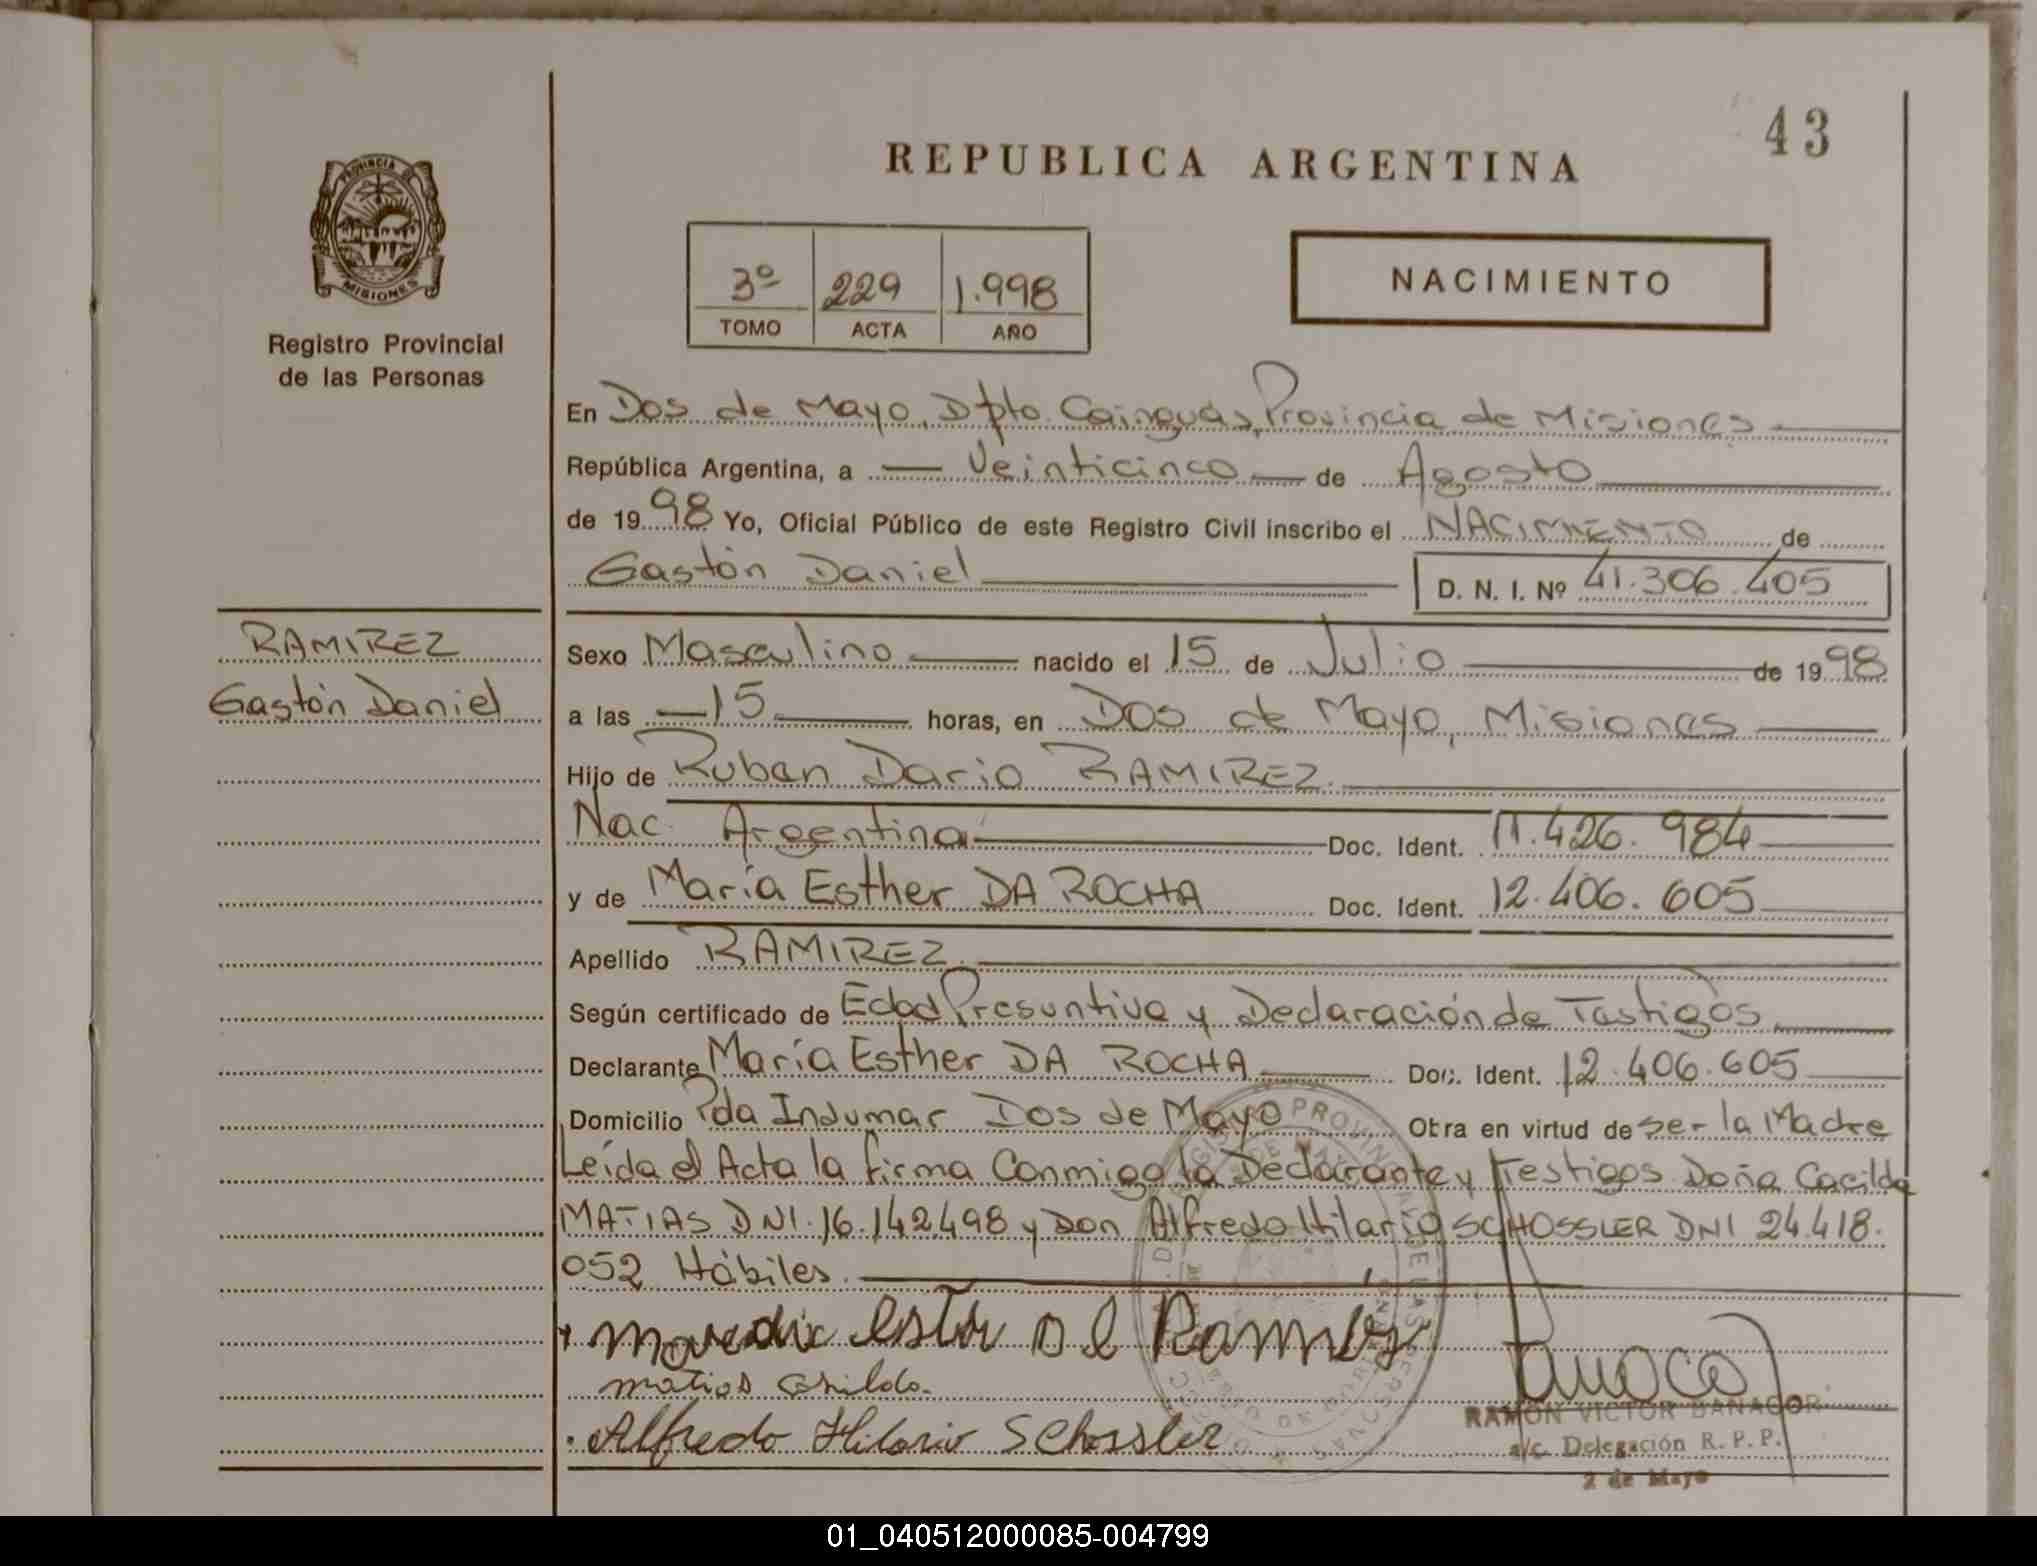 43
REPUBLICA ARGENTINA
PROVINCIA DE
MISIONES
Registro Provincial
de las Personas
3º 229 1.998
TOMO ACTA AÑO
NACIMIENTO
En Dos de Mayo, Dpto. Cainguás, Provincia de Misiones
República Argentina, a Veinticinco de Agosto
de 1998 Yo, Oficial Público de este Registro Civil inscribo el NACIMIENTO de
Gastón Daniel D. N. I. Nº 41.306.405
RAMIREZ
Gastón Daniel
Sexo Masculino nacido el 15 de Julio de 1998
a las 15 horas, en Dos de Mayo, Misiones
Hijo de Ruben Dario RAMIREZ.
Nac. Argentina Doc. Ident. 11.426.984
y de María Esther DA ROCHA Doc. Ident. 12.406.605
Apellido RAMIREZ.
Según certificado de Edad Presuntiva y Declaración de Testigos
Declarante María Esther DA ROCHA Doc. Ident. 12.406.605
Domicilio Pda Indumar Dos de Mayo Otra en virtud de ser la Madre
Leída el Acta la firma Conmigo la Declarante y Testigos Doña Cacilda
MATIAS DNI.16.142.498 y Don Alfredo Hilario SCHOSSLER DNI 24.418.
052 Hábiles.
Ramirez
matias
Alfredo Hilario Schossler
RAMON VICTOR BANACOR
a/c. Delegación R. P. P.
2 de Mayo
01_040512000085-004799